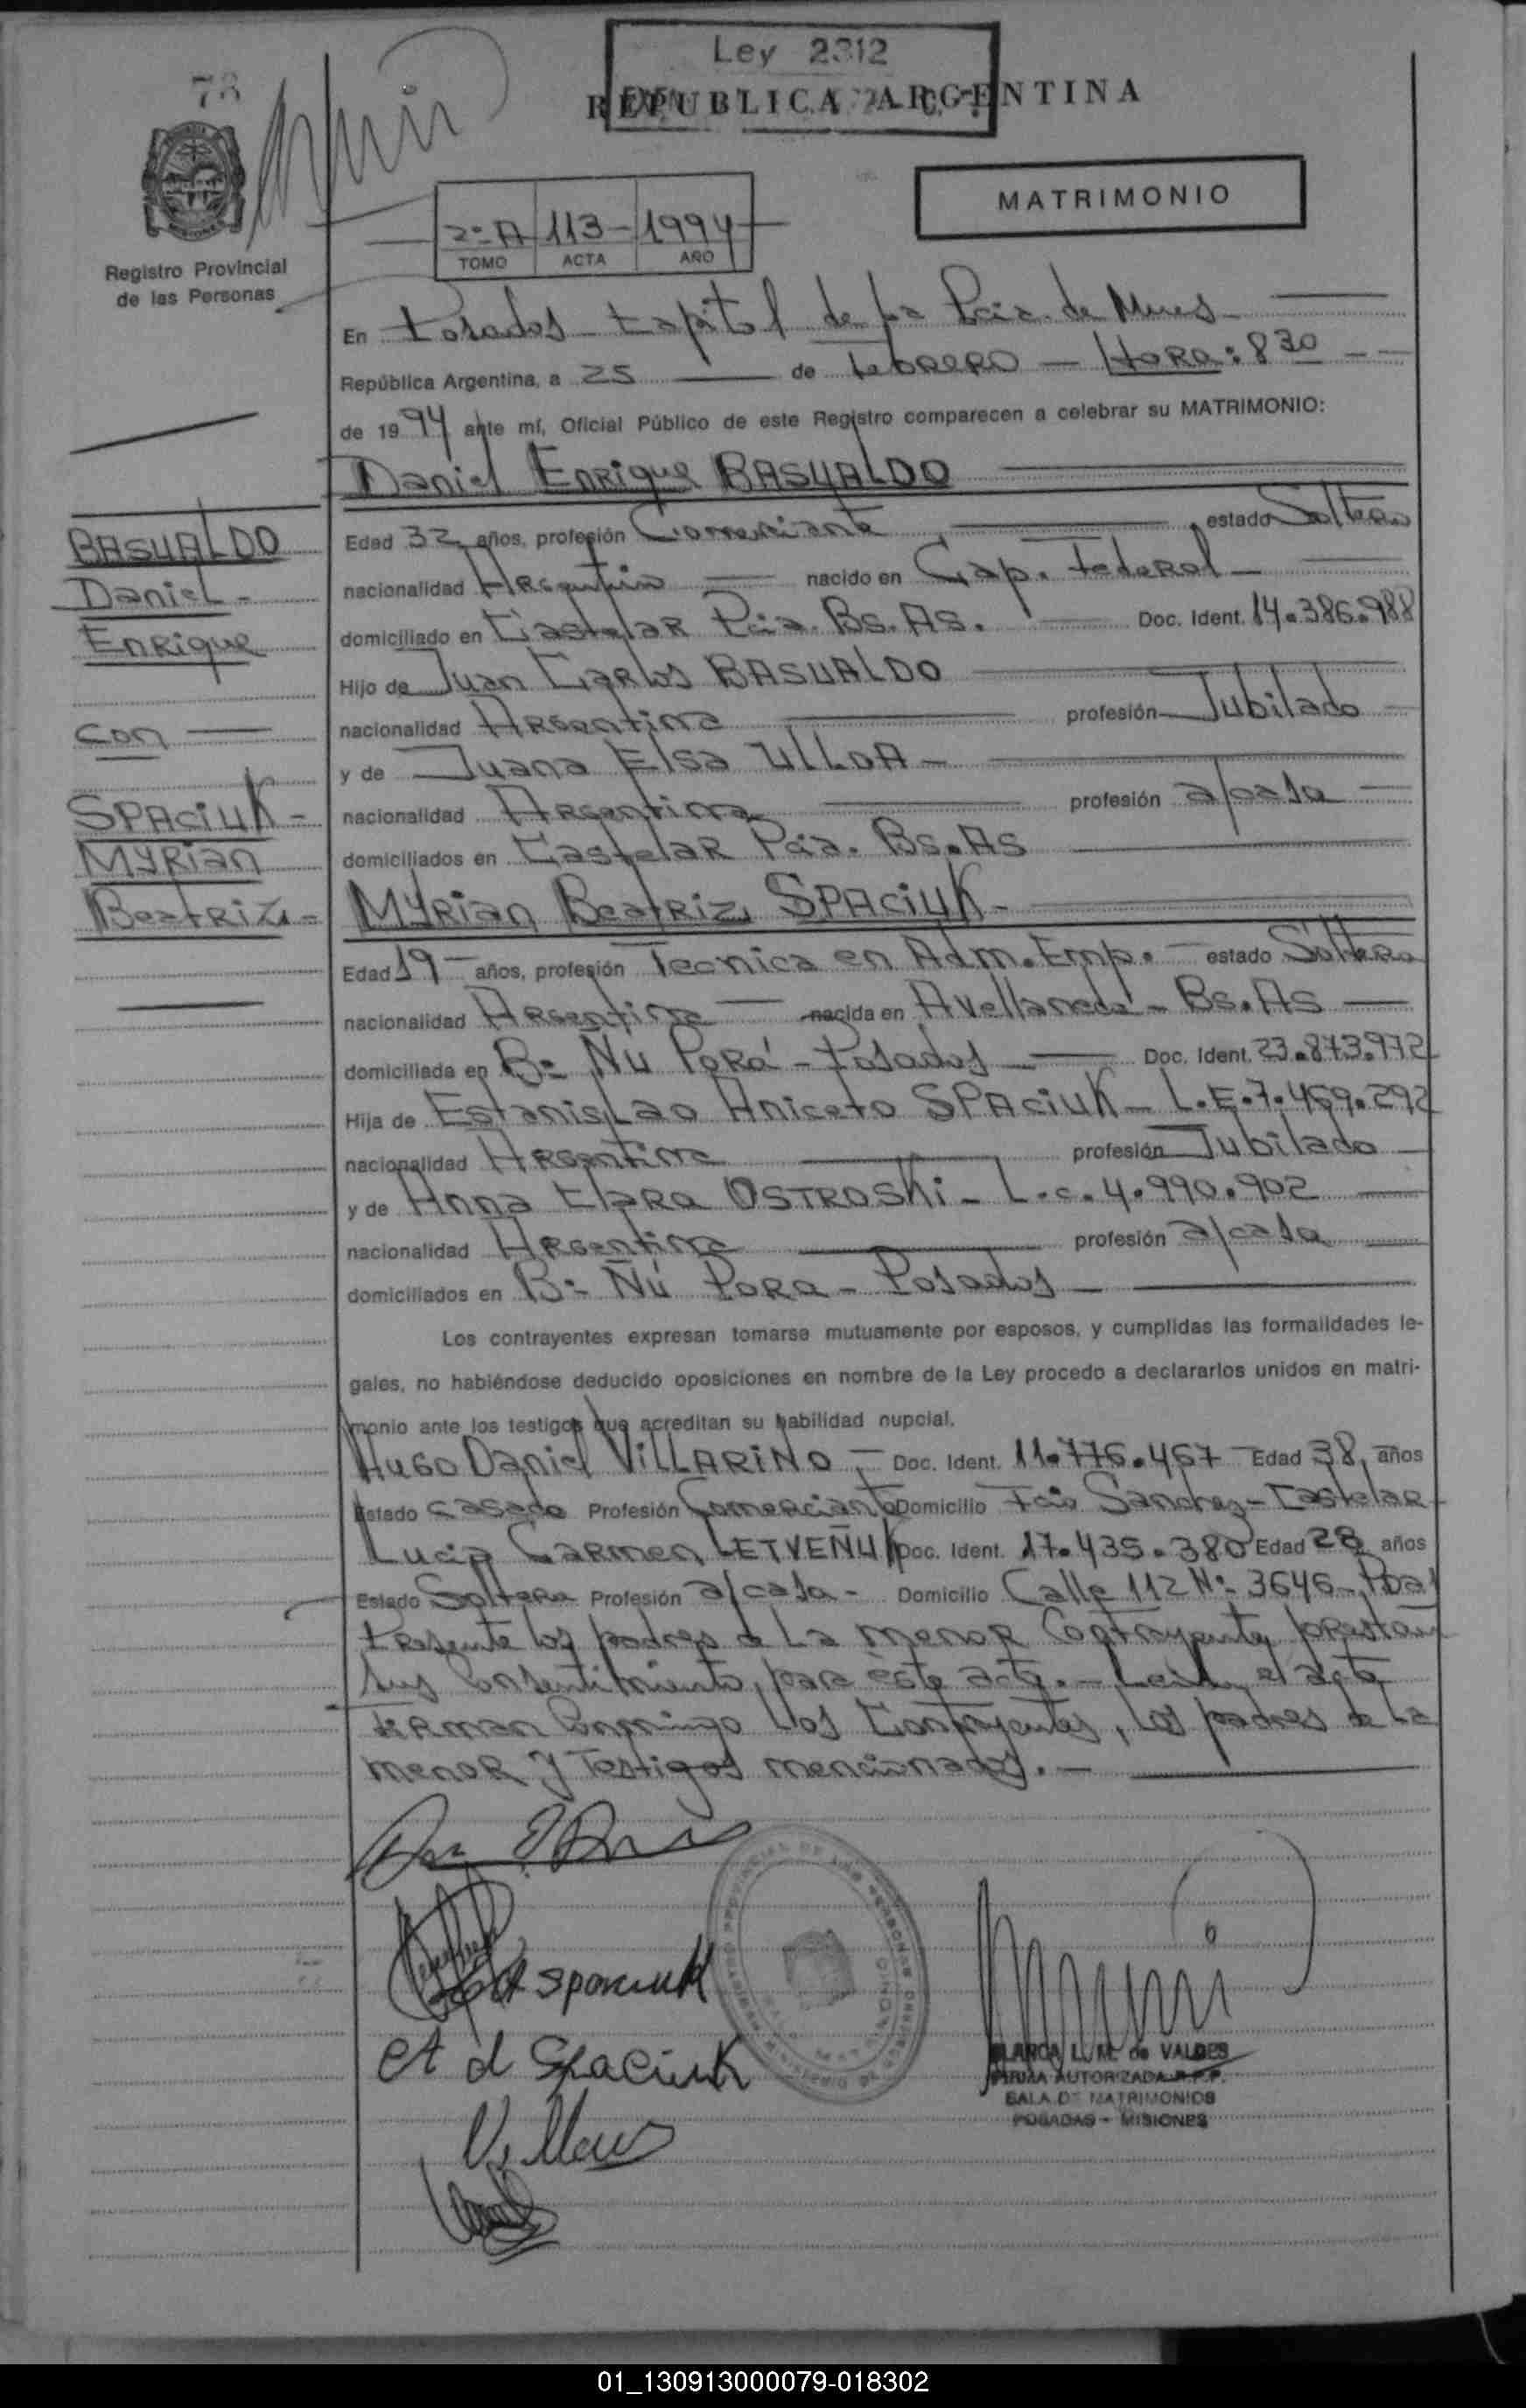 78
Ley 2312
REPUBLICA ARGENTINA
MATRIMONIO
2º A 113 - 1994
TOMO ACTA AÑO
Registro Provincial
de las Personas
En Posadas Capital de la Pcia. de Mnes
República Argentina, a 25 de Febrero - HORA: 8 30
de 1994 ante mí, Oficial Público de este Registro comparecen a celebrar su MATRIMONIO:
Daniel Enrique BASUALDO
BASUALDO
Daniel -
Enrique
con
SPACiUK -
MYRian
Beatriz -
Edad 32 años, profesión Comerciante estado Soltero
nacionalidad Argentino nacido en Cap. Federal -
domiciliado en Castelar Pcia. Bs. As. Doc. Ident. 14.386.988
Hijo de Juan Carlos BASUALDO
nacionalidad Argentina profesión Jubilado
y de Juana Elsa ULLOA -
nacionalidad Argentina profesión a/casa
domiciliados en Castelar Pcia. Bs. As
MYRian Beatriz SPACiUK -
Edad 19 - años, profesión Tecnica en Adm. Emp. - estado Soltera
nacionalidad Argentina nacida en Avellaneda - Bs. As
domiciliada en Bº Ñu Porá - Posadas Doc. Ident. 23.873.972
Hija de Estanislao Aniceto SPACiUK - L.E. 7.469.292
nacionalidad Argentina profesión Jubilado
y de Anna Clara OSTROSKi - L.C. 4.990.902
nacionalidad Argentina profesión a/casa
domiciliados en Bº Ñú Pora - Posadas
Los contrayentes expresan tomarse mutuamente por esposos, y cumplidas las formalidades le-
gales, no habiéndose deducido oposiciones en nombre de la Ley procedo a declararlos unidos en matri-
monio ante los testigos que acreditan su habilidad nupcial.
Hugo Daniel ViLLARiÑO - Doc. Ident. 11.776.467 Edad 38 años
Estado casado Profesión Comerciante Domicilio Fcio Sanchez - Castelar
Lucia Carmen LETVEÑUK Doc. Ident. 17.435.380 Edad 28 años
Estado Soltera Profesión a/casa - Domicilio Calle 112 Nº 3646 - Pdas
Presente los padres de La menor Contrayente, prestan
sus Consentimiento, para este acto. - Leida el acta
Firman Conmingo Los Contrayentes, los padres de La
menor y Testigos mencionados. -
A Spaciuk
Spaciuk
BLANCA L. M. de VALDES
FIRMA AUTORIZADA R.P.P.
SALA DE MATRIMONIOS
POSADAS - MISIONES
01_130913000079-018302